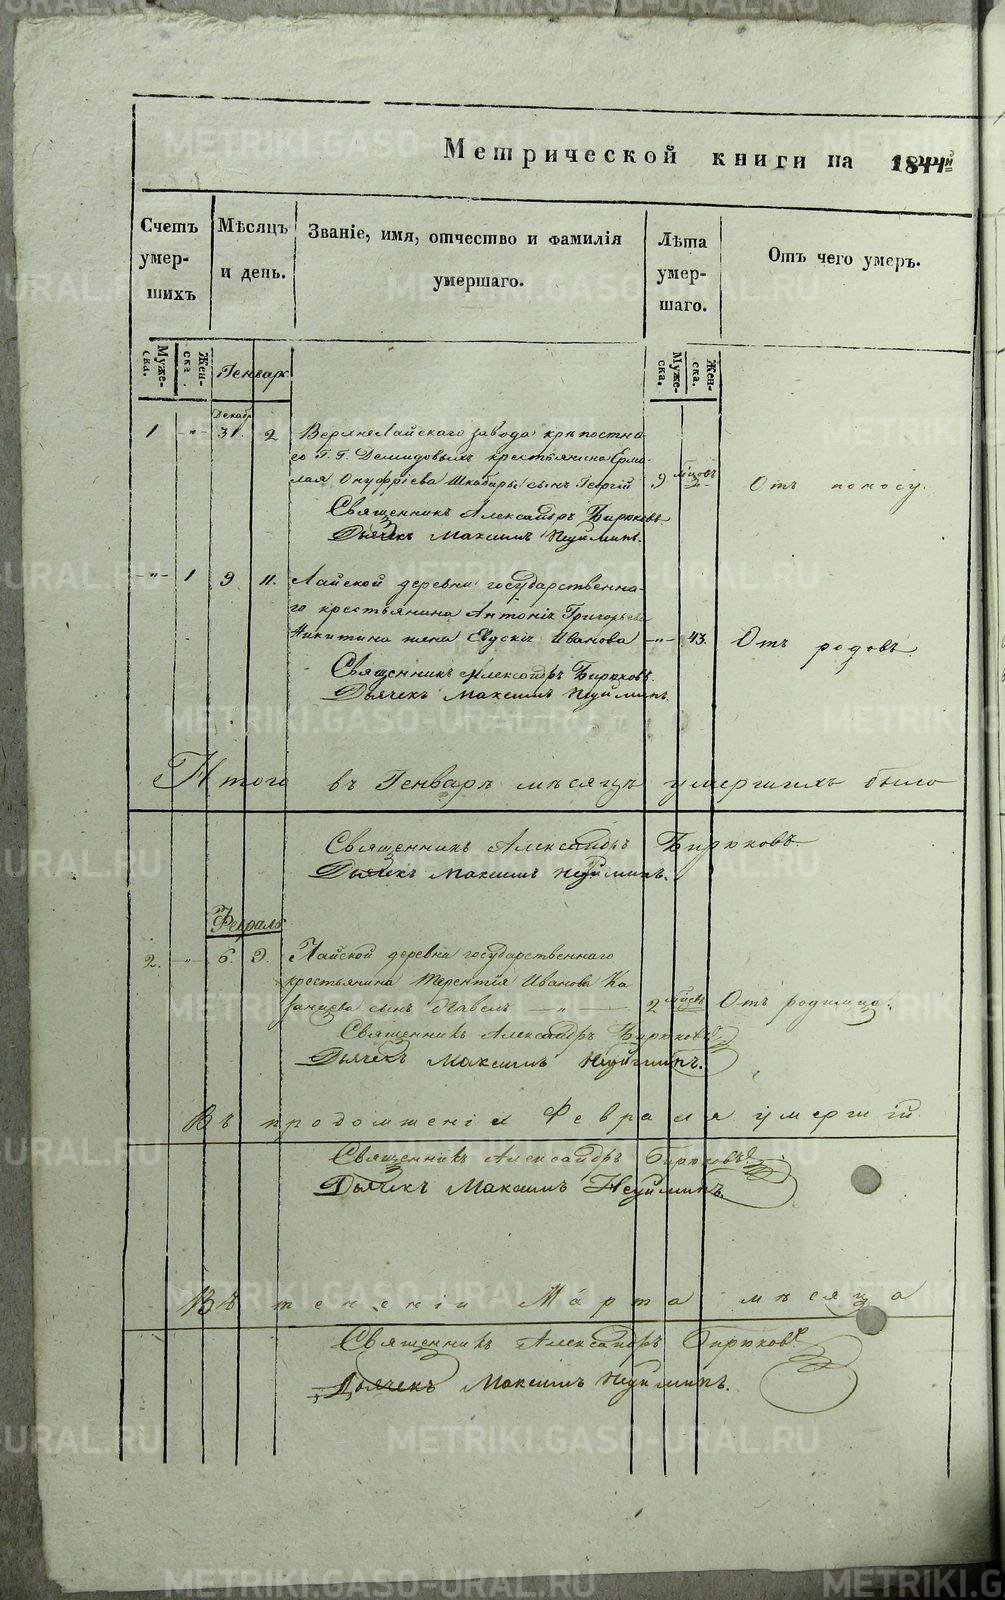 Метрической книги на 1844й
Счетъ умер- шихъ
Мѣсяцъ и день.
Званіе, имя, отчество и фамилія умершаго.
Лѣта умер- шаго.
Отъ чего умеръ.
Муже- ска.
Жен- ска.
Генваря
Муже- ска.
Жен- ска.
Декабр
1 -"- 31. 2 Верхнелайскаго завода крѣпостна-
го Г. Г. Демидовыхъ крестьянина Ермо-
лая Онуфріева сынъ Георгій 9 мѣсяцъ Отъ поносу.
Священникъ Александръ Бирюковъ
Дьячекъ Максимъ Неуйминъ.
-"- 1 9 11. Лайской деревни государственна-
го крестьянина Антонія Григорьева
Никитина жена Евдокія Иванова -"- 43. Отъ родовъ
Священникъ Александръ Бирюковъ
Дьячекъ Максимъ Неуйминъ.
Итого въ Генварѣ мѣсяцѣ умершихъ было
Священникъ Александръ Бирюковъ.
Дьячекъ Максимъ Неуйминъ.
Февраль
2. -"- 6. 9. Лайской деревни государственнаго
крестьянина Терентія Иванова Ка
занцева сынъ Павелъ -"- 2 мѣсяц Отъ родимца.
Священникъ Александръ Бирюковъ
Дьячекъ Максимъ Неуйминъ.
Въ продолженіи Февраля умершій
Священникъ Александръ Бирюковъ
Дьячекъ Максимъ Неуйминъ
Въ теченіи Марта мѣсяца
Священникъ Александръ Бирюковъ
Дьячекъ Максимъ Неуйминъ.
METRIKI.GASO-URAL.RU